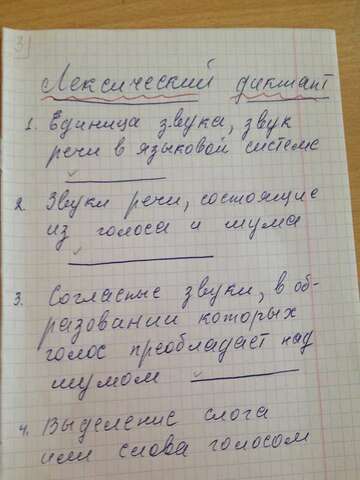 3
Лексический диктант
1. Единица звука, звук
речи в языковой системе
2. Звуки речи, состоящие
из голоса и шума
3. Согласные звуки, в об-
разовании которых
голос преобладает над
шумом
4. Выделение слога
или слова голосом